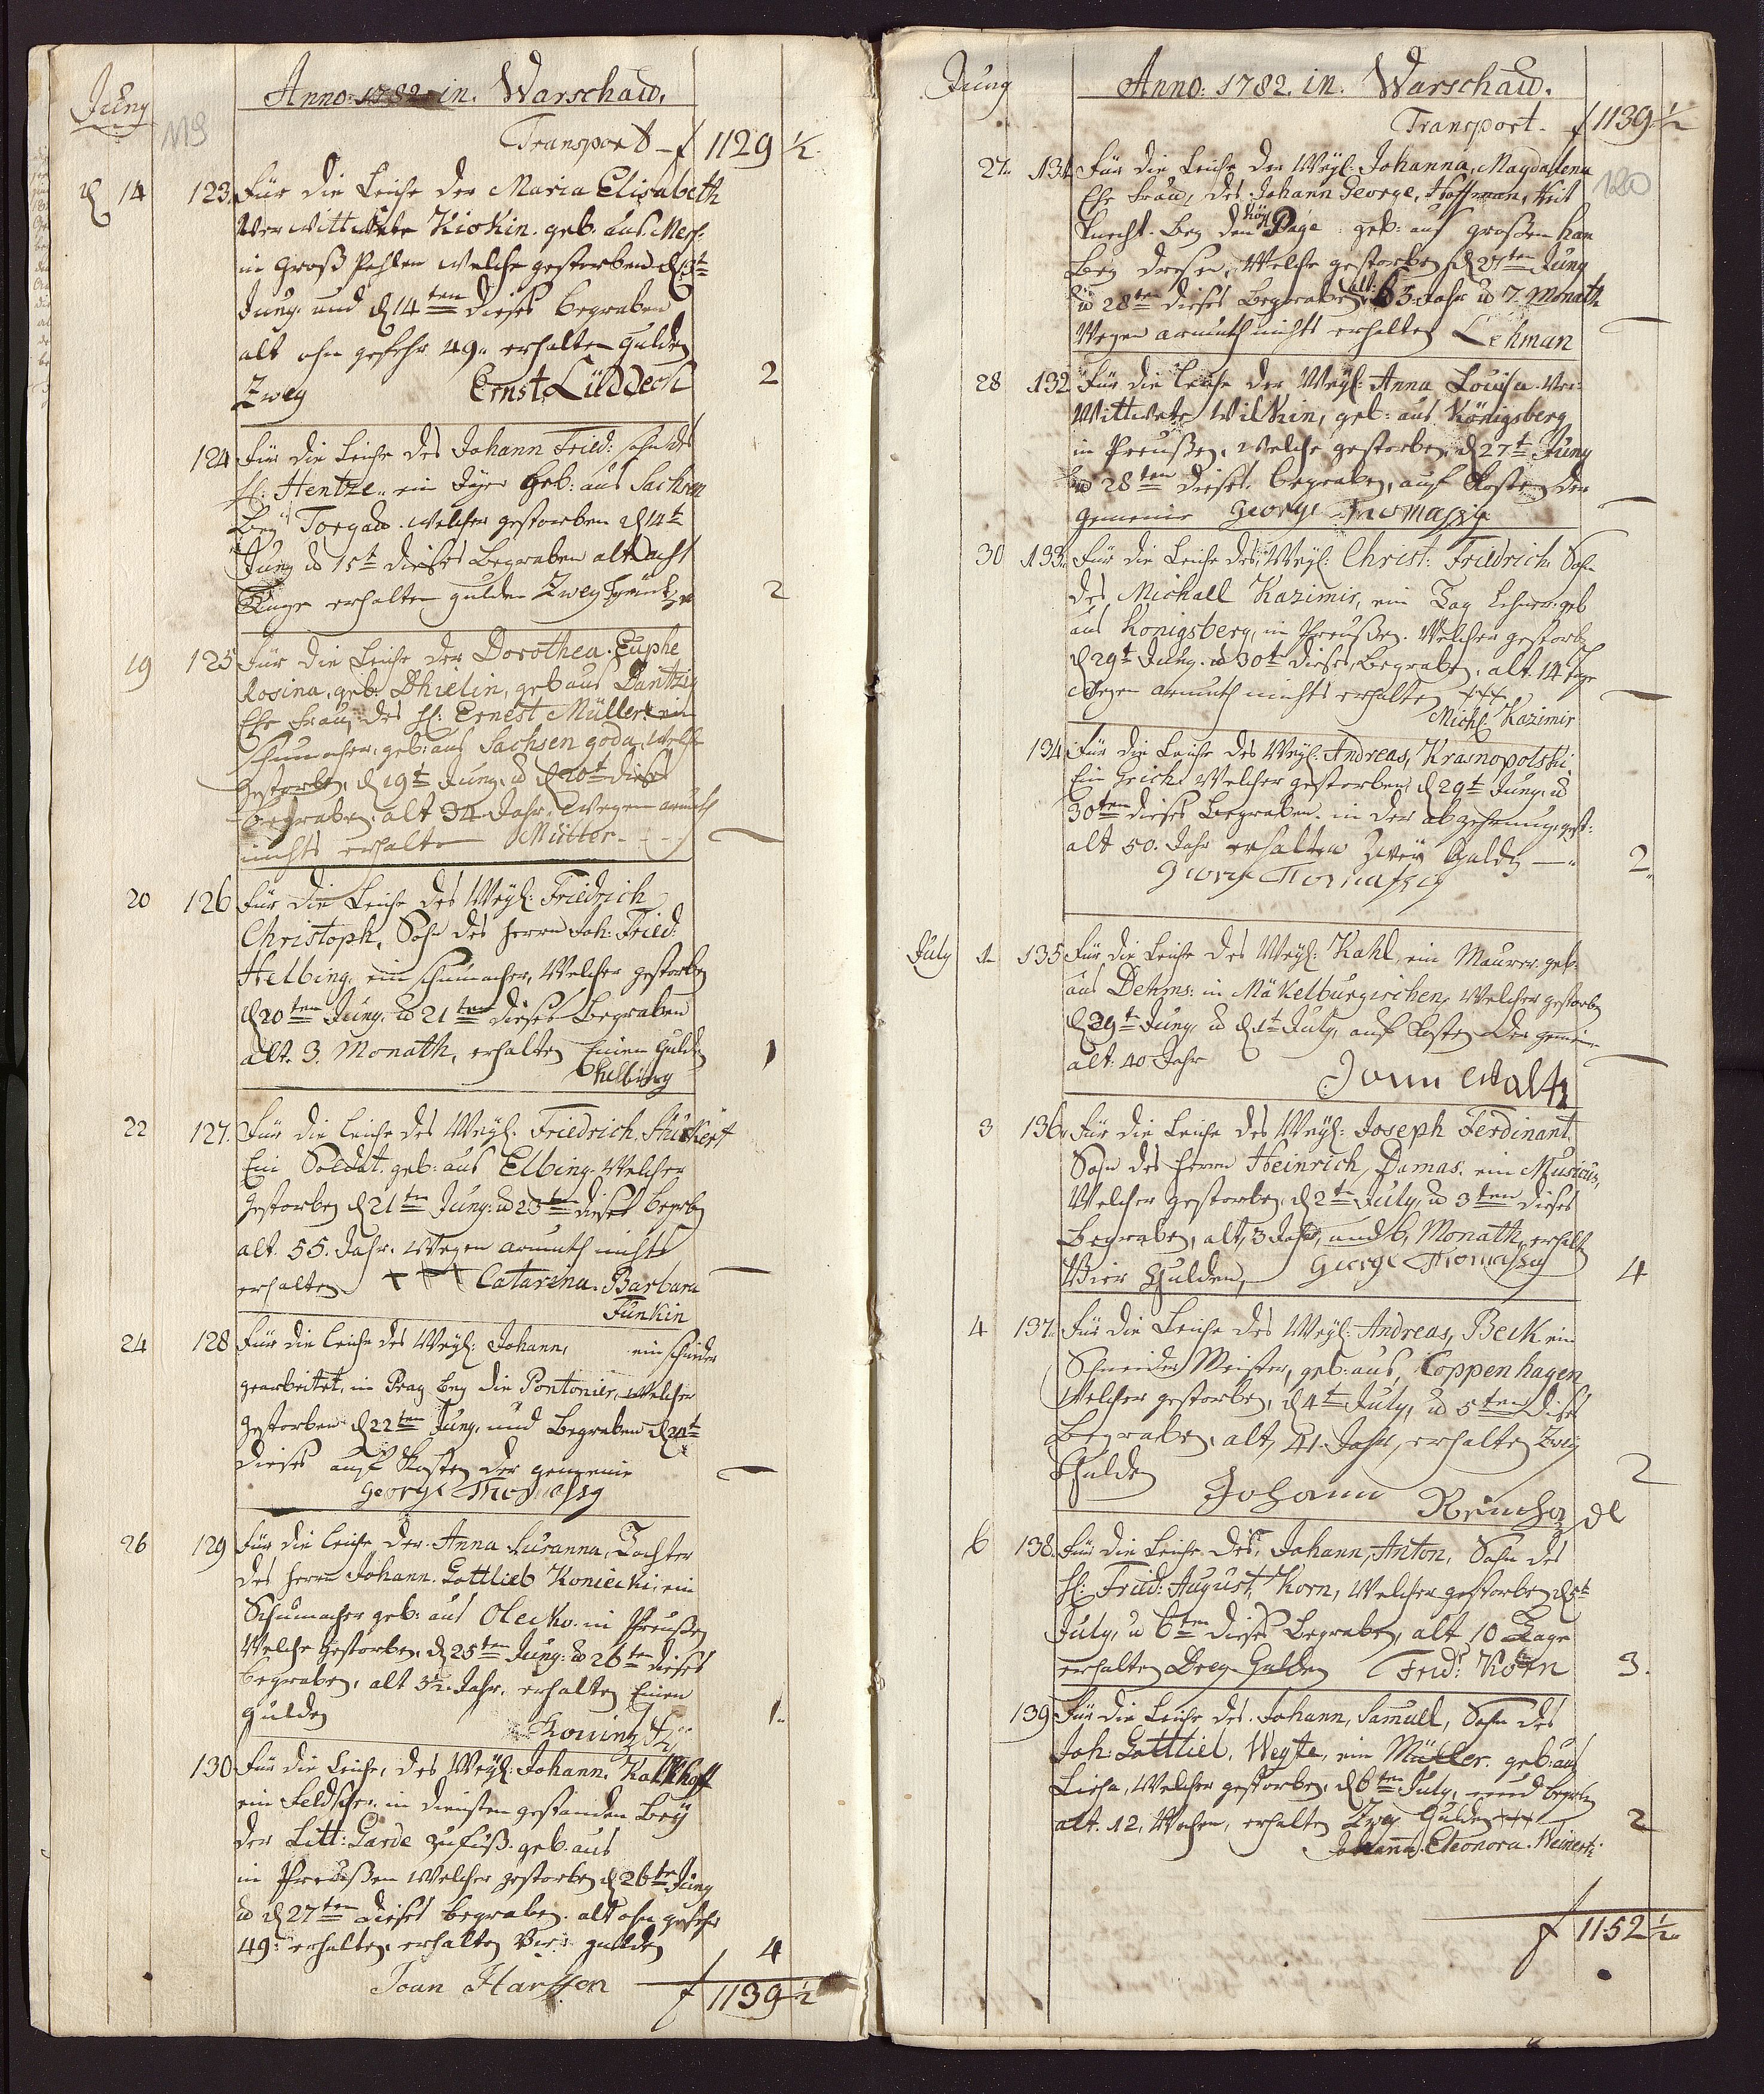 Juny
119
Anno: 1782 in. Warschau.
Transport - f 1129 1/2
d 14 123. Für die Leiche der Maria Elisabeth
Ver wittwete Kiokin. geb. aus
in Groß welche gestorben d 13t
Juny. und d 14ten dieses begraben
alt ohn gefehr 49. erhalten gulden
Zwey Ernst Lüddeck 2
124 Für die Leiche des Johann Fried: sohn des
H: Hentze. ein geb: aus Sachsen
bey Torgau. welcher gestorben d 14t
Juny u 15t dieses begraben alt acht
Tage erhalten gulden Zwey 2
19 125 Für die Leiche der Dorothea. Euphe
Rosina, geb: Dhielin, geb aus Dantzig
Ehe Frau, des H: Ernest Müller ein
schumacher, geb: aus Sachsen goda, welche
gestorben, d 19t Juny, u d 20t dieses
begraben, alt 34 Jahr, wegen armuth
nichts erhalten Müller
20 126 Für die Leiche des Weyl: Friedrich
Christoph, Sohn des herrn Joh: Fried:
Helbing, ein schumacher, Welcher gestorben
d 20ten Juny, u 21ten dieses Begraben
alt. 3. Monath, erhalten Einen Gulden 1
Helbing
22 127. Für die Leiche des Weyl: Friedrich,
Ein Soldat. geb: aus Elbing. Welcher
gestorben d 21ten Juny: u 23ten dieses begrben
alt. 55. Jahr. Wegen armuth nichts
erhalten +++ Catarina. Barbara
Funkin
24 128 Für die Leiche des Weyl: Johann, ein
gearbeitet, in Prag bey die Pontonier, welcher
gestorben d 22ten Juny, und Begraben d 24t
dieses auf Kosten der gemeine
George Thomassy
26 129 Für die Leiche der Anna Susanna, Tochter
des herrn Johann. Gottlieb Koniecki, ein
Schumacher geb: aus Olecko. in Preußen
Welche gestorben, d 25ten Juny: u 26ten dieses
begraben, alt 3½. Jahr. erhalten Einen
gulden 1.
130 Für die Leiche, des Weyl: Johann. Kalkhoff
ein Feldscher. in Diensten gestanden Bey
der Litt: Garde zu fuß. geb. aus
in Preußen Welcher gestorben d 26ten Juny
u d 27ten dieses begraben. alt ohn gefehr
49: erhalten, erhalten Vier gulden 4
Joan Harsson f 1139 1/2
Juny
Anno: 1782. in. Warschau.
Transport. - f 1139 1/2
120
27. 131 Für die Leiche der Weyl: Johanna, Magdalena
Ehe Frau, des Johann George, Hoffman, Reit
Knecht. Bey den Kön Page. geb: aus großen han
Bey dresen, Welche gestorben d 27ten Juny
u 28ten dieses Begraben alt: 63. Jahr u 7. Monath
Wegen armuth nichts erhalten Lehman
28 132. Für die Leiche der Weyl: Anna Louisa. Ver-
Wittwete Wilkin, geb: aus Königsberg
in Preußen, Welche gestorben, d 27t Juny
u 28ten dieses. begraben, auf Kosten der
gemeine George Thomassy
30 133. Für die Leiche des, Weyl: Christ: Friedrich. Sohn
des Michall Kazimir, ein Tag Lehner. geb
aus Konigsberg, in Preußen. Welcher gestorb
d 29t Juny. u 30t dieses, Begraben, alt. 14 Tage
Wegen armuth nichts erhalten +++
Michl. Kazimir
134 Für die Leiche des Weyl: Andreas, Krasnopolski
Ein Welcher gestorben, d 29t Juny. u
30ten dieses Begraben. in der abzehrung gest:
alt 50. Jahr erhalten Zwey Gulden 2.
George Thomassy
July 1. 135 Für die Leiche des Weyl: Kahl, ein Maurer. geb:
aus Dehms: in Mäkelburgischen, Welcher gestorben
d 29t Juny, u d 1t July, auf Kosten der gemein
alt. 40 Jahr
3 136. Für die Leiche des Weyl: Joseph Ferdinant,
Sohn des herrn Heinrich, Damas. ein Musicus,
Welcher gestorben, d 2te July, u 3ten dieses
Begraben, alt, 3 Jahr, und 6, Monath, erhalt
Vier Gulden, George Thomassy 4
4 137. Für die Leiche des Weyl: Andreas, Beck ein
Schneider Meister, geb: aus, Coppenhagen
Welcher gestorben, d 4t July, u 5ten dieses
Begraben, alt, 41. Jahr, erhalten Zwey
Gulden 2
Johann
6 138. Für die Leiche. des, Johann, Anton, Sohn des
H: Fried: August, Korn, Welcher gestorben d 5t
July, u 6ten dieses Begraben, alt 10 Tage
erhalten Drey Gulden Fried: Korn 3.
139 Für die Leiche des. Johann, Samuel, Sohn des
Joh: Gottlieb, Weyte, ein Müller. geb: aus
Liesa, Welcher gestorben, d 6ten July, und begrben
alt. 12. Wochen, erhalten Zwey Gulden +++ 2
Johanna. Eleonora. Weinert.
f 1152 1/2